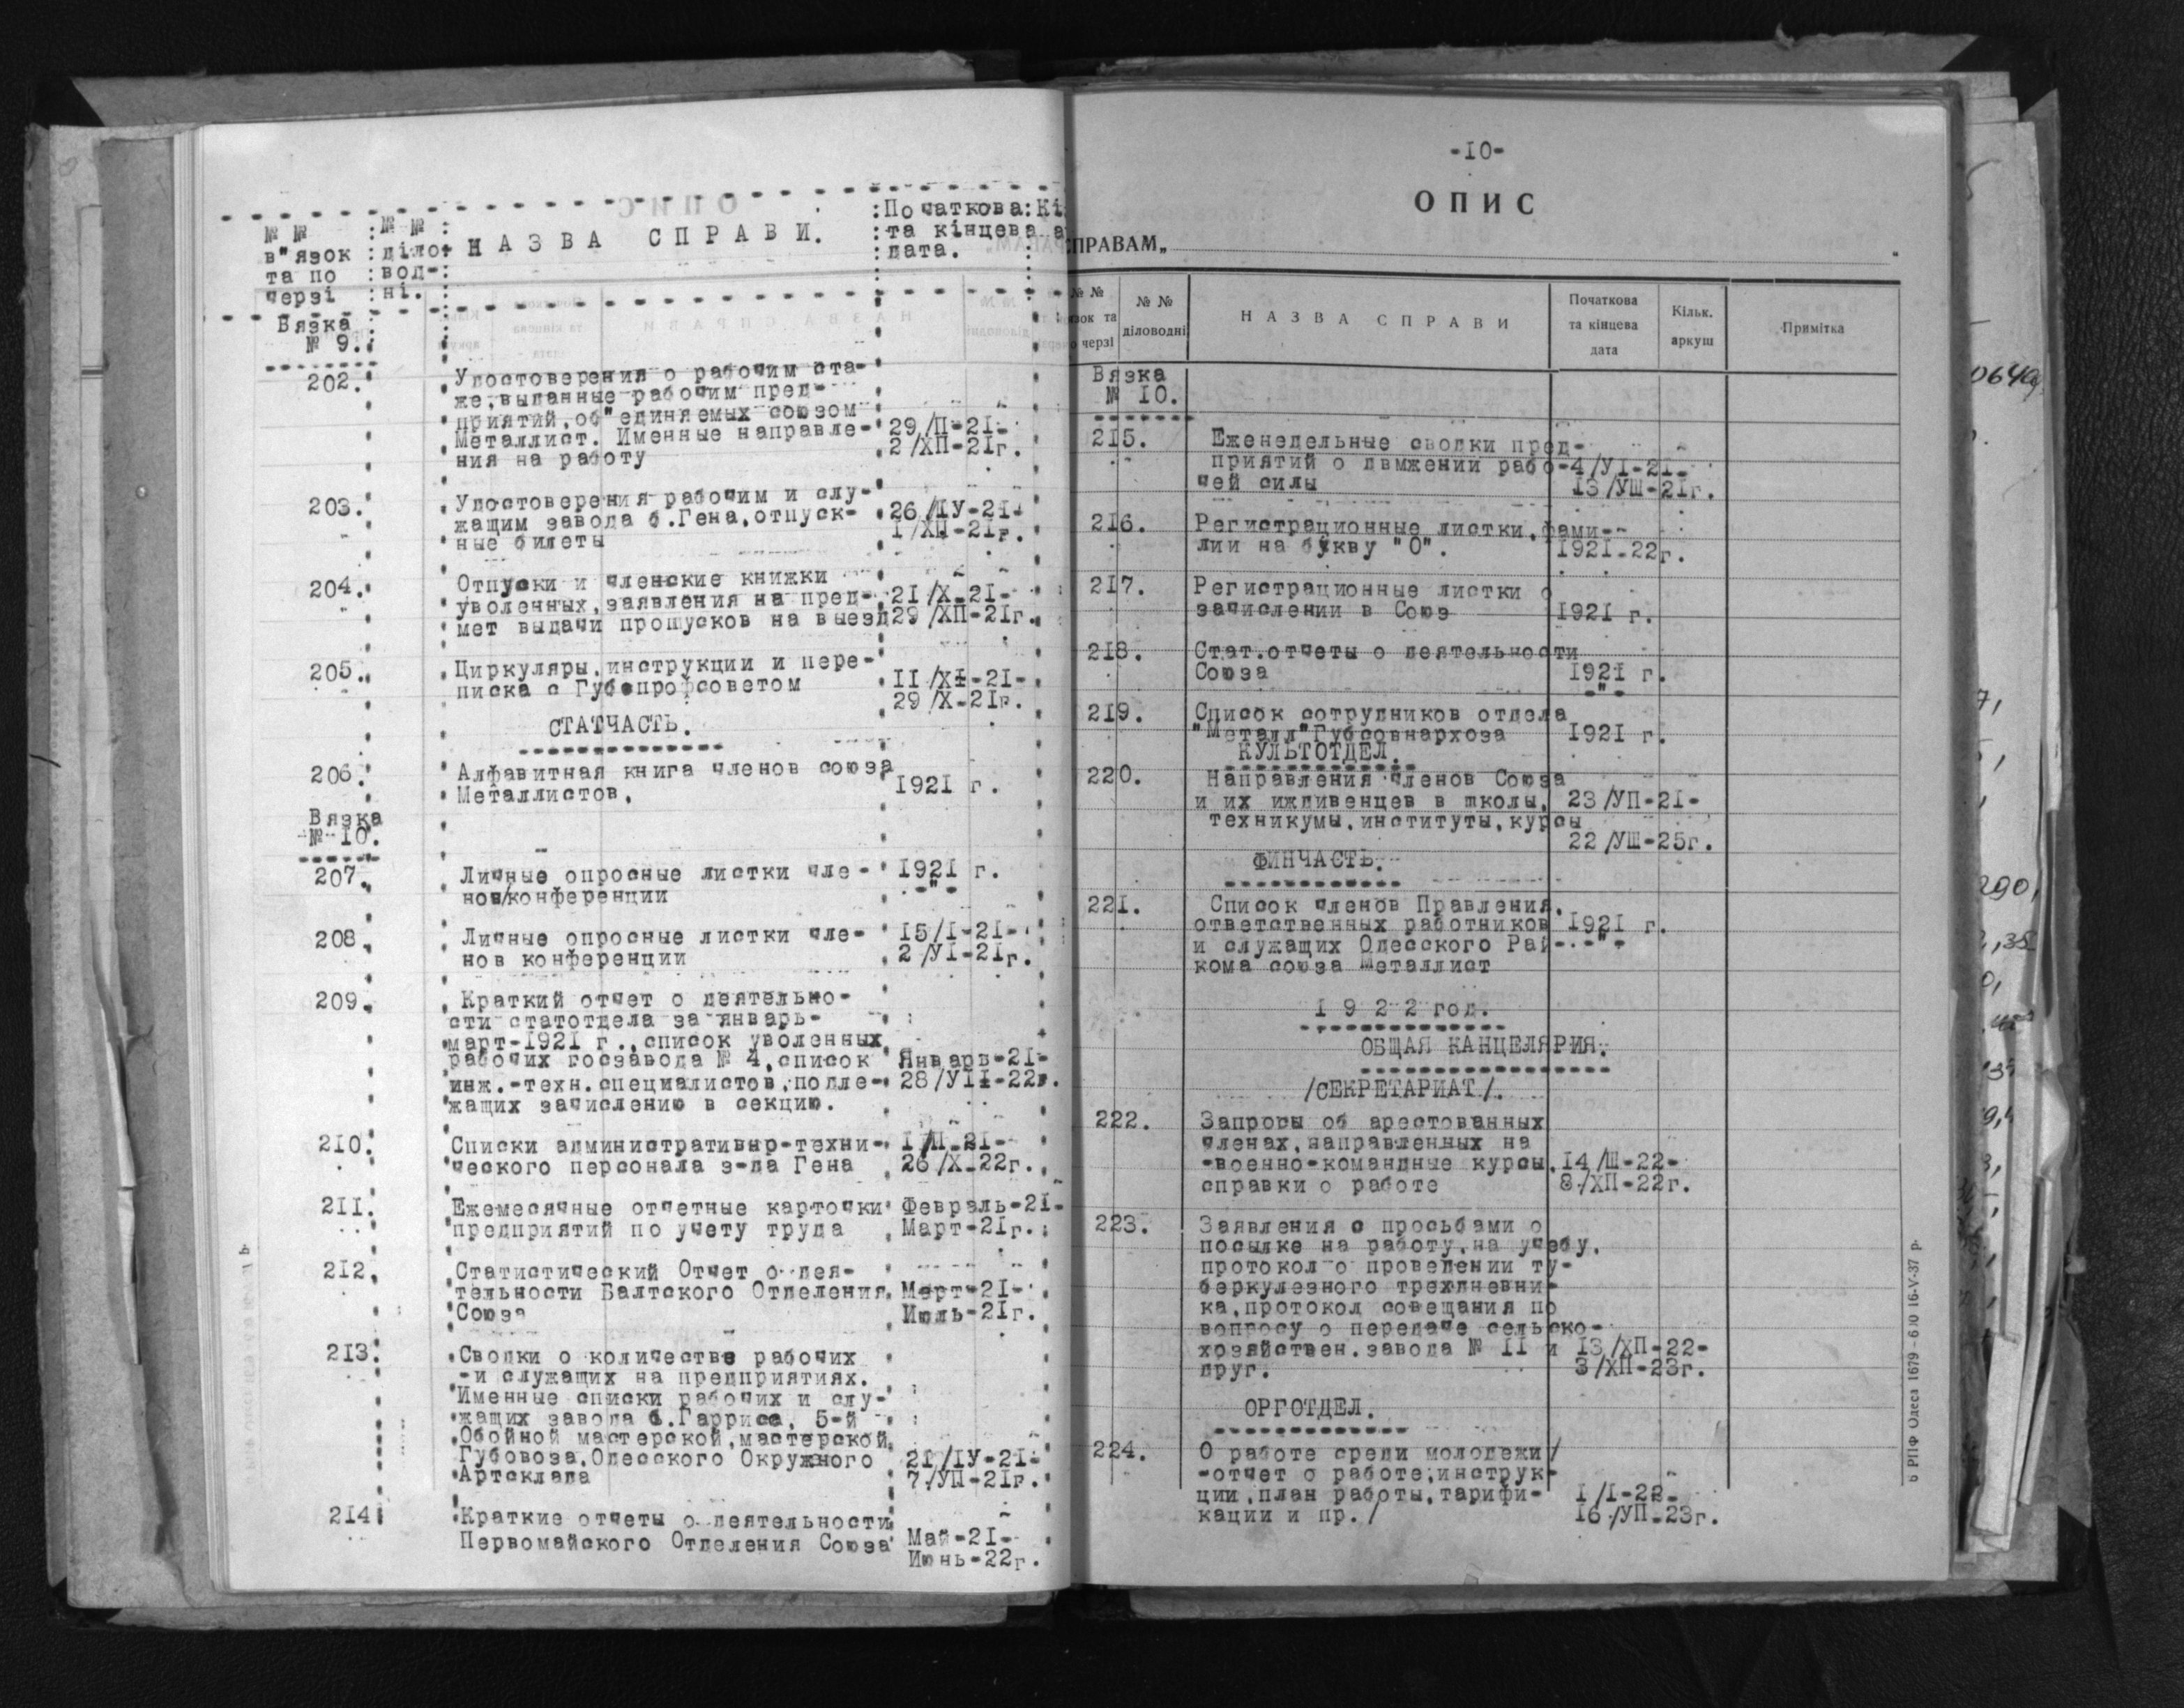 № № в"язок та по черзі
№ № діло-вод-ні.
НАЗВА СПРАВИ.
Початкова та кінцева дата.
Вязка
№ 9.
202. Удостоверения о рабочим ста-
же,выданные рабочим пред-
приятий,об"единяемых союзом
Металлист. Именные направле- 29/П-21-
ния на работу 2/ХП-21г.
203. Удостоверения рабочим и слу-
жащим завода б.Гена,отпуск- 26/IУ-21-
ные билеты 1/ХП-21г.
204. Отпуски и членские книжки
уволенных,заявления на пред- 21/Х-21-
мет выдачи пропусков на выезд 29/ХП-21г.
205. Циркуляры,инструкции и пере-
писка с Губпрофсоветом II/XI-21-
29/Х-21г.
СТАТЧАСТЬ.
206. Алфавитная книга членов союза
Металлистов. 1921 г.
Вязка
№ 10.
207. Личные опросные листки чле- 1921 г.
нов/конференции -"-
208. Личные опросные листки чле- 15/I-21-
нов конференции 2/УI-21г.
209. Краткий отчет о деятельно-
сти статотдела за январь-
март-1921 г.,список уволенных
рабочих госзавода № 4,список Январь-21-
инж.-техн.специалистов,подле- 28/УII-22г.
жащих зачислению в секцию.
210. Списки административнр-техни- I/П-21-
ческого персонала з-да Гена 26/Х-22г.
211. Ежемесячные отчетные карточки Февраль-21-
предприятий по учету труда Март-21г.
212. Статистический Отчет о дея-
тельности Балтского Отделения Март-21-
Союза Июль-21г.
213. Сводки о количестве рабочих
-и служащих на предприятиях.
Именные списки рабочих и слу-
жащих завода б.Гарриса, 5-й
Обойной мастерской,мастерской
Губовоза,Одесского Окружного 21/IУ-21-
Артсклада 7/УП-21г.
214. Краткие отчеты о деятельности
Первомайского Отделения Союза Май-21-
Июнь-22г.
-10-
ОПИС
СПРАВАМ„
№ № діловодні
НАЗВА СПРАВИ
Початкова та кінцева дата
Кільк. аркуш
Примітка
Вязка
№ 10.
215. Еженедельные сводки пред-
приятий о двмжении рабо- 4/УI-21-
чей силы 13/УШ-21г.
216. Регистрационные листки,фами-
лии на букву "О". 1921-22г.
217. Регистрационные листки о
зачислении в Союз 1921 г.
218. Стат.отчеты о деятельности
Союза 1921 г.
-"-
219. Список сотрудников отдела
"Металл"Губсовнархоза 1921 г.
КУЛЬТОТДЕЛ.
220. Направления членов Союза
и их иждивенцев в школы, 23/УП-21-
техникумы,институты,курсы
22/УШ-25г.
ФИНЧАСТЬ.
221. Список членов Правления,
ответственных работников 1921 г.
и служащих Одесского Рай- -"-
кома союза Металлист
1 9 2 2 год.
ОБЩАЯ КАНЦЕЛЯРИЯ.
/СЕКРЕТАРИАТ/.
222. Запросы об арестованных
членах,направленных на
-военно-командные курсы, 14/Ш-22-
справки о работе 8/ХП-22г.
223. Заявления с просьбами о
посылке на работу,на учебу,
протокол о проведении ту-
беркулезного трехдневни-
ка,протокол совещания по
вопросу о передаче сельско-
хозяйствен.завода № II и 13/ХП-22-
друг. 3/ХП-23г.
ОРГОТДЕЛ.
224. О работе среди молодежи/
-отчет о работе,инструк-
ции,план работы,тарифи- 1/I-22-
кации и пр./ 16/УП-23г.
РПФ Одеса 1679 - 6 16-V-37 р.